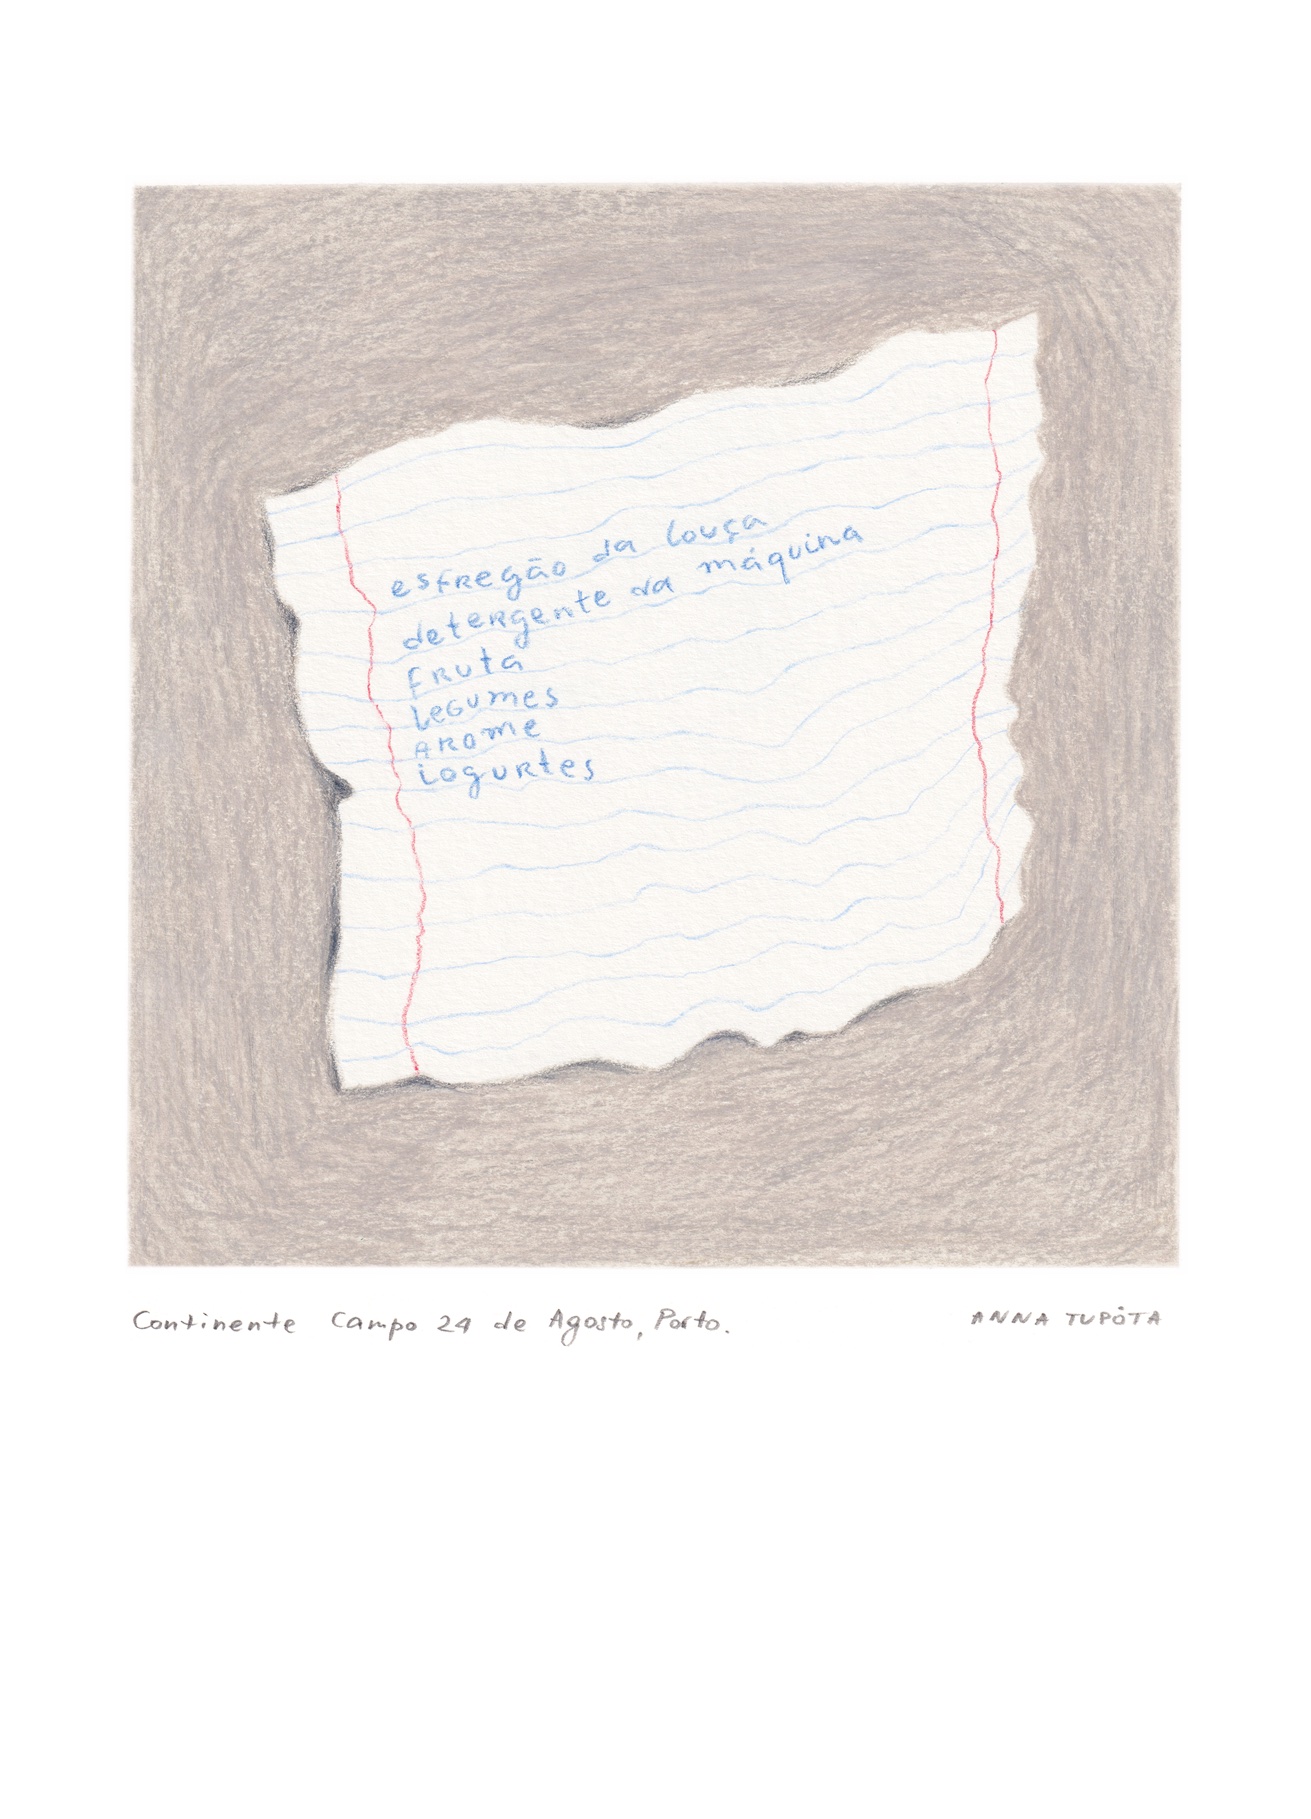 esfregão da louça
detergente da máquina
fruta
legumes
arome
iogurtes
Continente Campo 24 de Agosto, Porto.
ANNA TUPÔTA